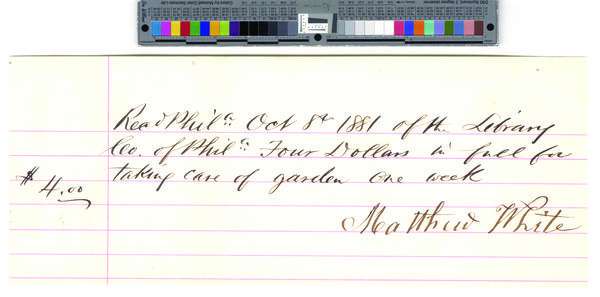 Recd Phila. Oct 8th 1881 of the Library
Co. of Phila. Four Dollars in full for
taking care of garden one week
$ 4.00
Matthew White